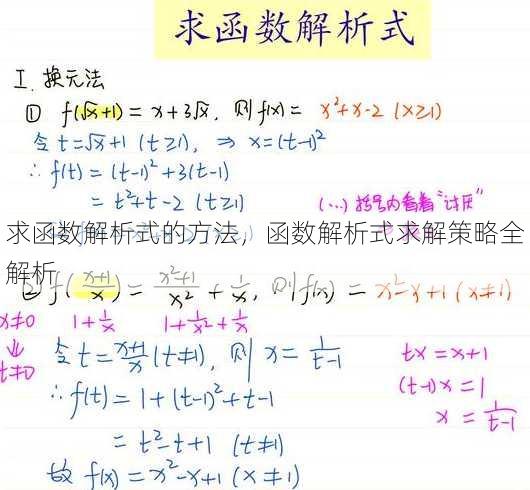 求函数解析式
I. 换元法
① f(√x+1) = x+3√x, 则 f(x) = x²+x-2 (x≥1)
令 t=√x+1 (t≥1), ⇒ x=(t-1)²
∴ f(t) = (t-1)²+3(t-1)
= t²+t-2 (t≥1)
(...) 括号内看着“讨厌”
求函数解析式的方法，函数解析式求解策略全
解析
② f((x+1)/x) = (x²+1)/x² + 1/x, 则 f(x) = x²-x+1 (x≠1)
x≠0 1+1/x 1+1/x²+1/x
⇓
t≠0
令 t=(x+1)/x (t≠1), 则 x=1/(t-1)
tx=x+1
(t-1)x=1
x=1/(t-1)
∴ f(t) = 1+(t-1)²+t-1
= t²-t+1 (t≠1)
故 f(x) = x²-x+1 (x≠1)